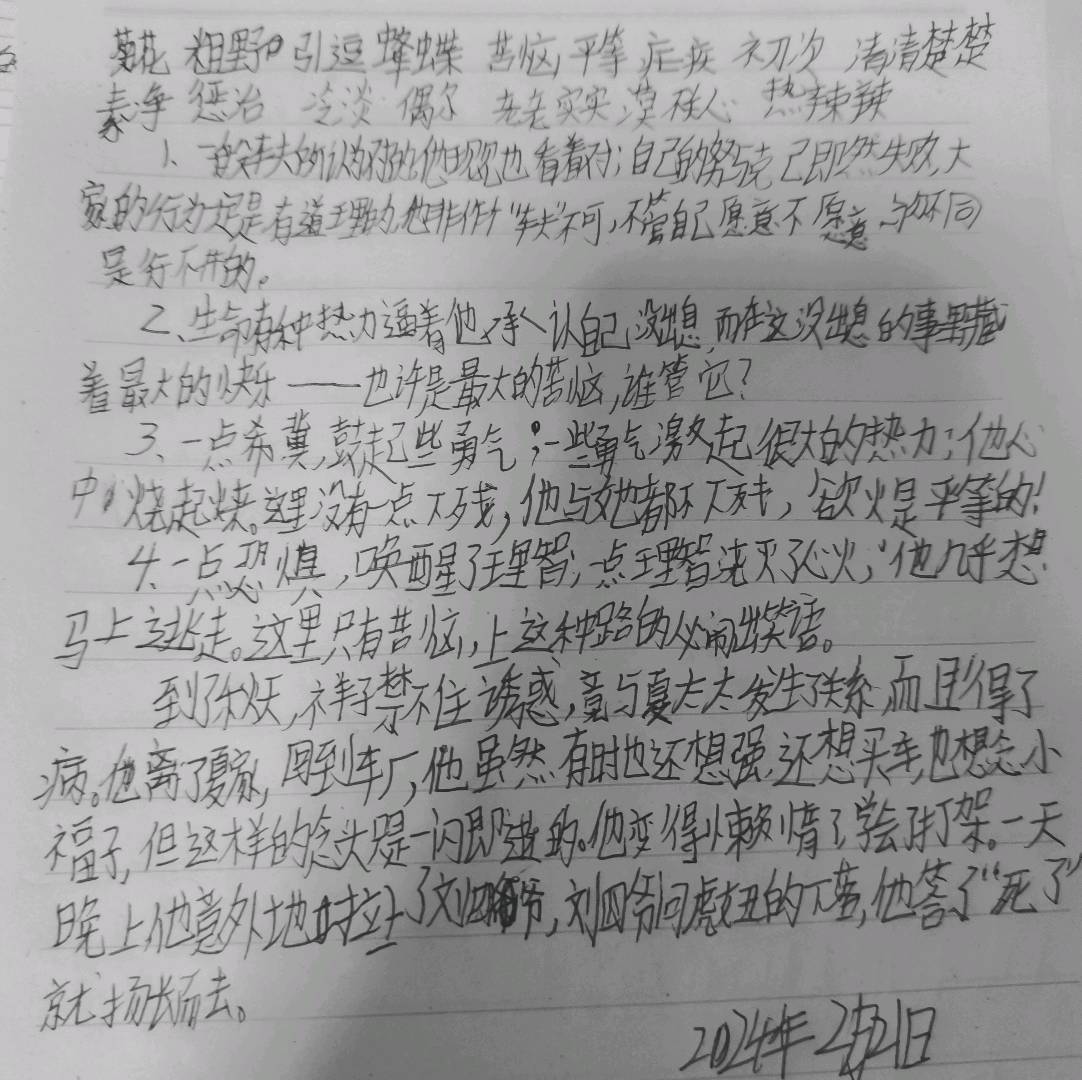 菊花 粗野 引逗 蜂蝶 苦恼 平等 症疾 初次 清清楚楚
素净 惩治 冷淡 偶尔 老老实实 莫在心 热辣辣
1、一般车夫所认为对的,他现也看着对;自己的努与克己既然失败,大
家的行为一定是有道理的,他非作个“车夫”不可,不管自己愿意不愿意,与众不同
是行不开的。
2、生命有种热力逼着他承认自己没出息,而在这没出息的事里藏
着最大的快乐——也许是最大的苦恼,谁管它?
3、一点希冀,鼓起些勇气;一些勇气激起很大的热力;他心
中烧起来。这里没有一点下贱,他与她都不下贱,欲火是平等的!
4、一点恐惧,唤醒了理智;一点理智浇灭了心火;他几乎想
马上逃走。这里只有苦恼,上这种路的必闹出笑话。
到了秋天,祥子禁不住诱惑,竟与夏太太发生了关系,而且得了
病。他离了夏家,回到车厂,他虽然有时也还想强,还想买车,也想念小
福子,但这样的念头只是一闪即逝的。他变得懒惰了,学会了打架。一天
晚上,他意外地拉上了刘四爷,刘四爷问虎妞的下落,他答了“死了”
就扬长而去。
2024年2月21日